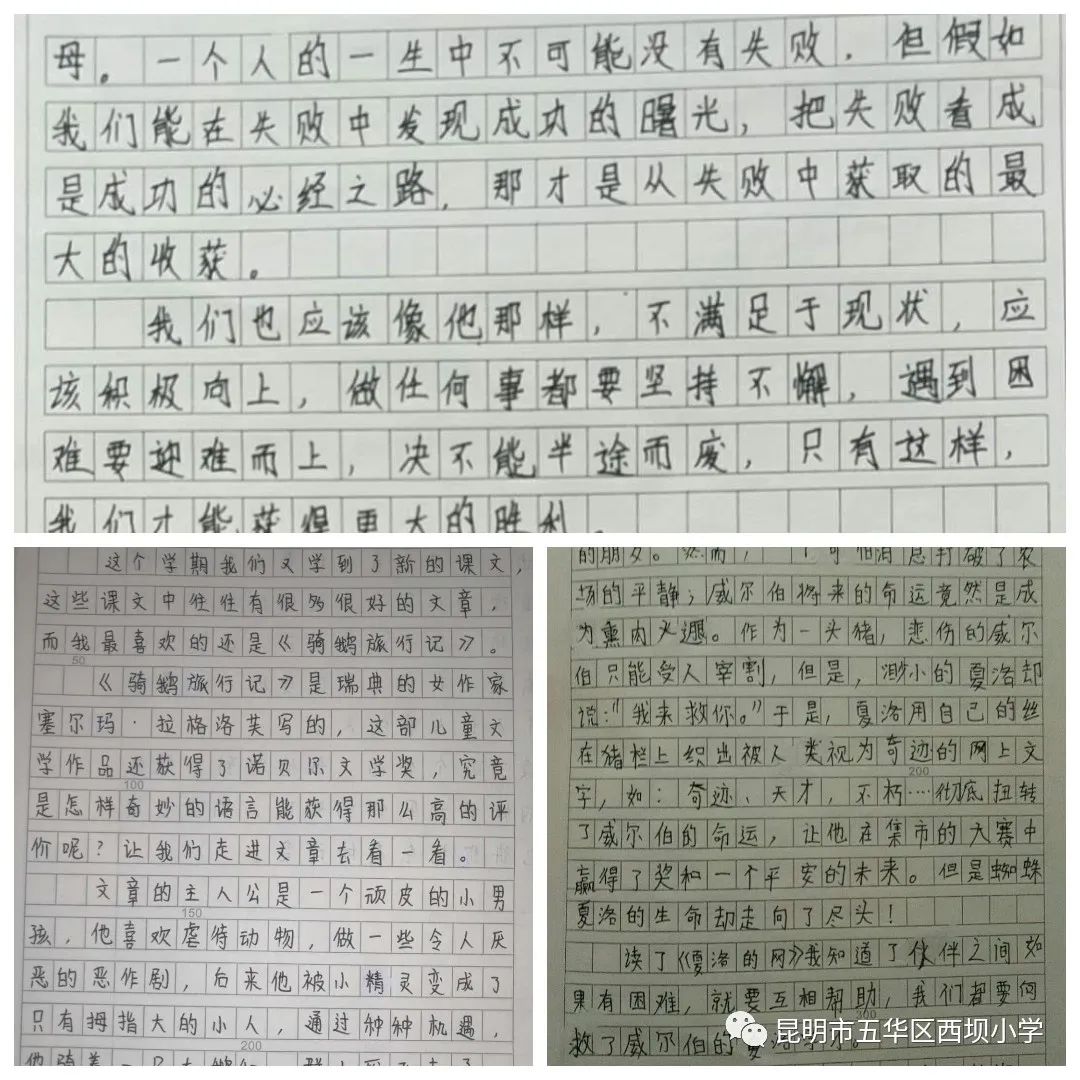 母。一个人的一生中不可能没有失败，但假如
我们能在失败中发现成功的曙光，把失败看成
是成功的必经之路，那才是从失败中获取的最
大的收获。
我们也应该像他那样，不满足于现状，应
该积极向上，做任何事都要坚持不懈，遇到困
难要迎难而上，决不能半途而废，只有这样，
我们才能获得更大的胜利。
这个学期我们又学到了新的课文，
这些课文中往往有很多很好的文章，
而我最喜欢的还是《骑鹅旅行记》。
50
《骑鹅旅行记》是瑞典的女作家
塞尔玛·拉格洛芙写的，这部儿童文
学作品还获得了诺贝尔文学奖，究竟
100
是怎样奇妙的语言能获得那么高的评
价呢？让我们走进文章去看一看。
文章的主人公是一个顽皮的小男
150
孩，他喜欢虐待动物，做一些令人厌
恶的恶作剧，后来他被小精灵变成了
只有拇指大的小人，通过种种机遇，
200
他骑着一只大鹅
的朋友。然而，一个可怕消息打破了农
场的平静；威尔伯将来的命运竟然是成
为熏肉火腿。作为一头猪，悲伤的威尔
伯只能受人宰割，但是，渺小的夏洛却
说："我来救你。"于是，夏洛用自己的丝
在猪栏上织出被人类视为奇迹的网上文
200
字，如：奇迹、天才，不朽……彻底扭转
了威尔伯的命运，让他在集市的大赛中
赢得了奖和一个平安的未来。但是蜘蛛
夏洛的生命却走向了尽头！
读了《夏洛的网》我知道了伙伴之间如
果有困难，就要互相帮助，我们都要向
300
救了威尔伯的夏洛学习。
昆明市五华区西坝小学